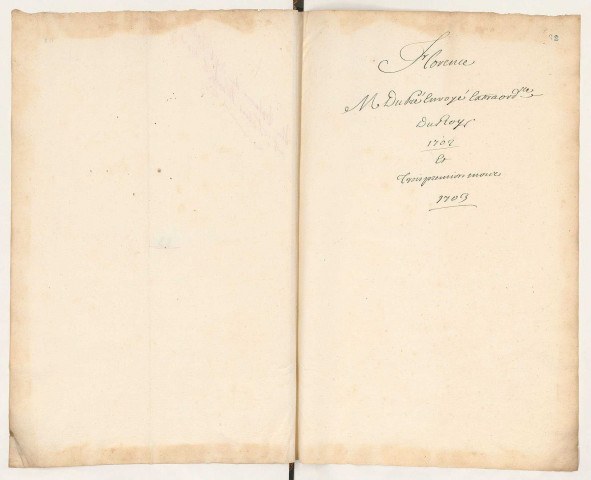 Florence
M Dupré Envoyé Extraord.re
Du Roy
1702
Et
Trois premiers mois
1703